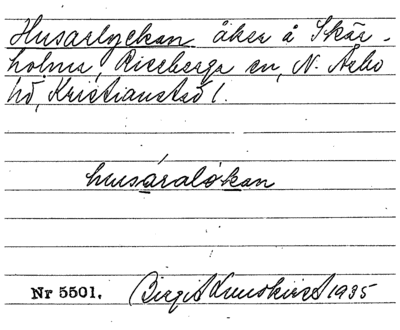 Husarlyckan åker å Skär-
holma, Riseberga sn, N. Åsbo
hd, Kristianstad l.
husáralø̨kan
Nr 5501. Birgit Lundkvist 1935